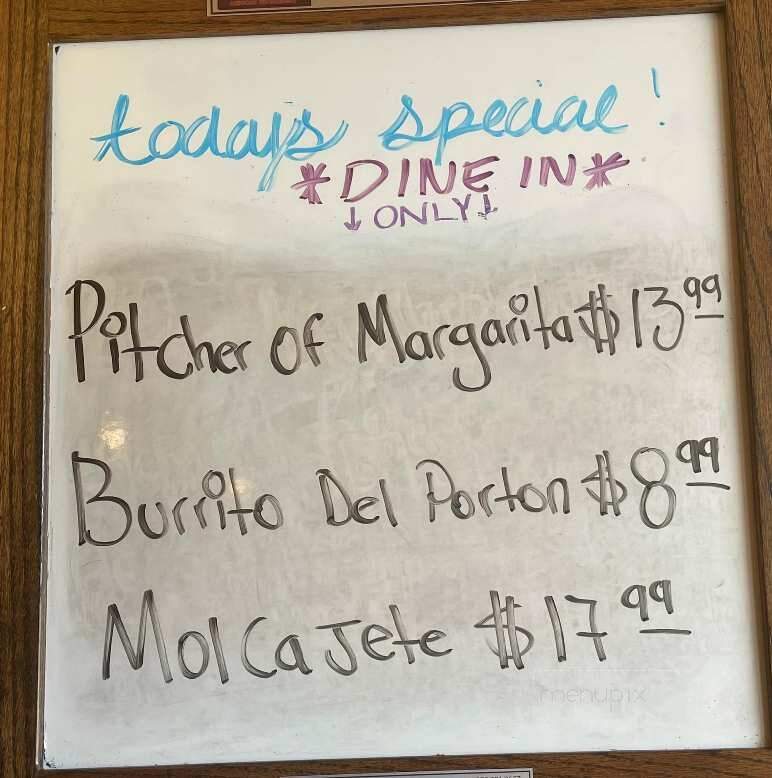 todays special!
*DINE IN*
↓ONLY↓
Pitcher of Margarita $13.99
Burrito Del Porton $8.99
Molcajete $17.99
menupix